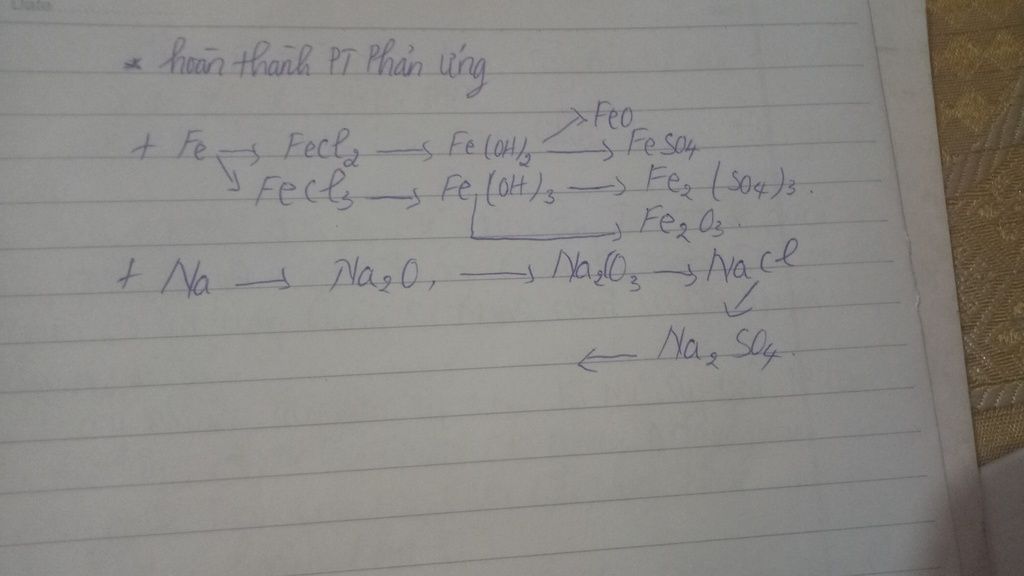 Date
* hoàn thành PT Phản ứng
→ FeO
+ Fe → FeCl2 → Fe(OH)2 → FeSO4
↘ FeCl3 → Fe(OH)3 → Fe2(SO4)3.
→ Fe2O3.
+ Na → Na2O, → Na2CO3 → NaCl
← Na2SO4.